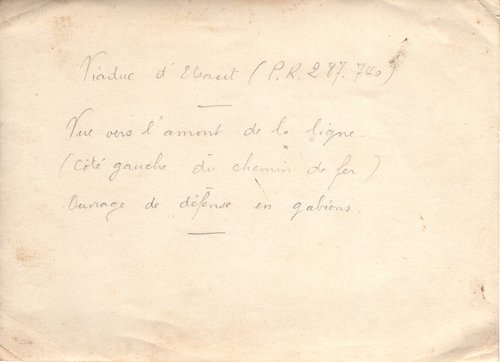 Viaduc d'Etsaut (P.K. 287.740)
Vue vers l'amont de la ligne
(Côté gauche du chemin de fer)
Ouvrage de défense en gabions